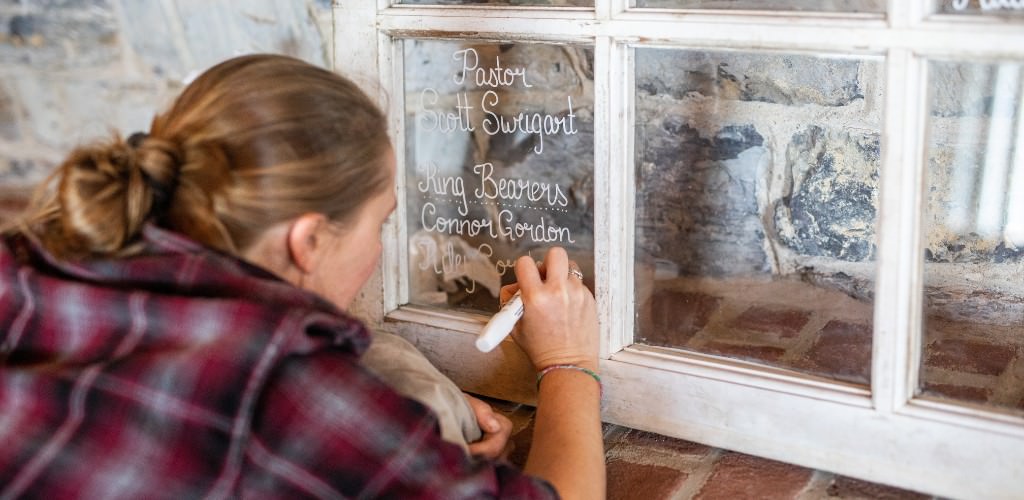 Pastor
Scott Swigart
King Bearers
Connor Gordon